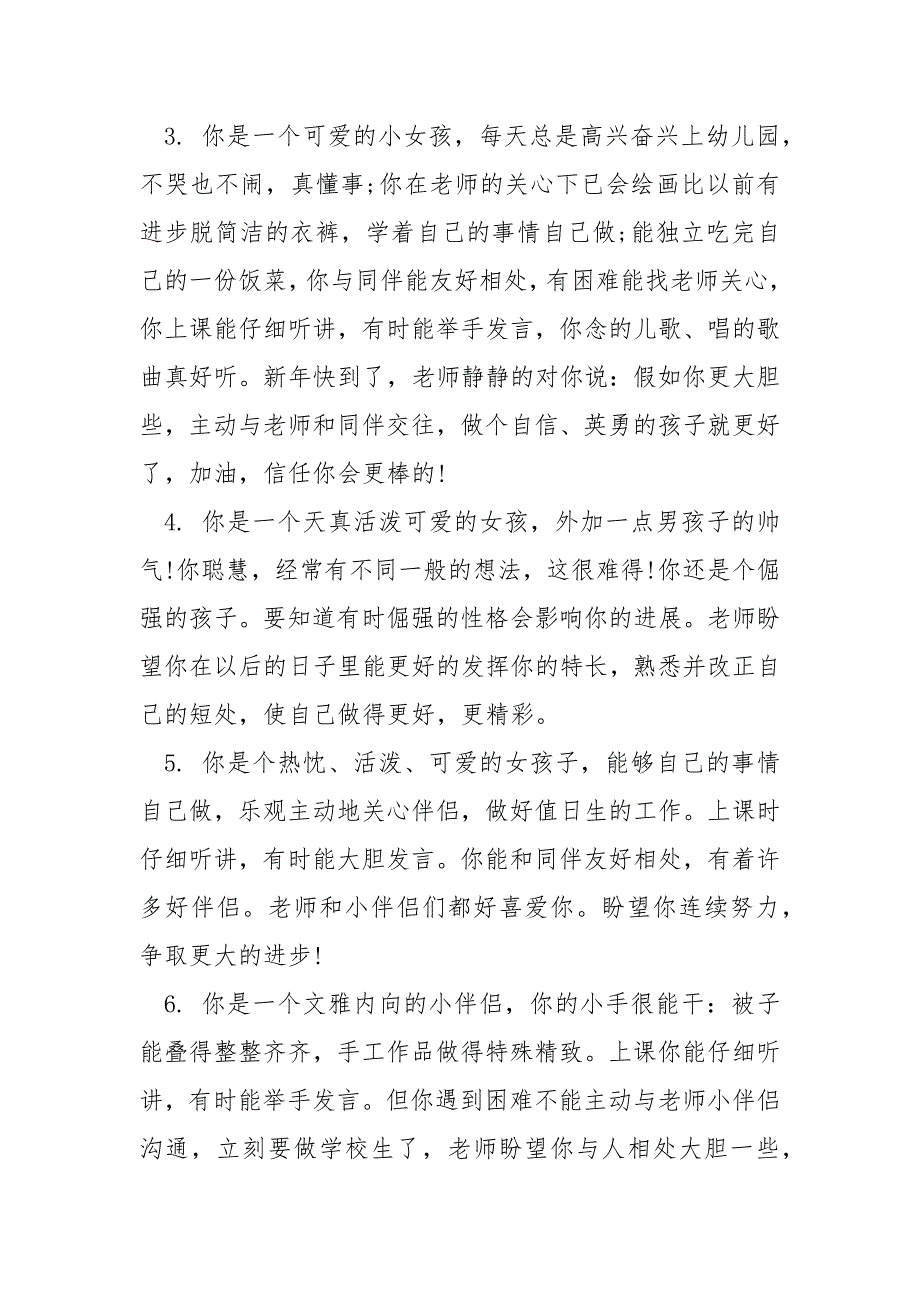 3. 你是一个可爱的小女孩，每天总是高兴奋兴上幼儿园，
不哭也不闹，真懂事;你在老师的关心下已会绘画比以前有
进步脱简洁的衣裤，学着自己的事情自己做;能独立吃完自
己的一份饭菜，你与同伴能友好相处，有困难能找老师关心，
你上课能仔细听讲，有时能举手发言，你念的儿歌、唱的歌
曲真好听。新年快到了，老师静静的对你说：假如你更大胆
些，主动与老师和同伴交往，做个自信、英勇的孩子就更好
了，加油，信任你会更棒的!
4. 你是一个天真活泼可爱的女孩，外加一点男孩子的帅
气!你聪慧，经常有不同一般的想法，这很难得!你还是个倔
强的孩子。要知道有时倔强的性格会影响你的进展。老师盼
望你在以后的日子里能更好的发挥你的特长，熟悉并改正自
己的短处，使自己做得更好，更精彩。
5. 你是个热忱、活泼、可爱的女孩子，能够自己的事情
自己做，乐观主动地关心伴侣，做好值日生的工作。上课时
仔细听讲，有时能大胆发言。你能和同伴友好相处，有着许
多好伴侣。老师和小伴侣们都好喜爱你。盼望你连续努力，
争取更大的进步!
6. 你是一个文雅内向的小伴侣，你的小手很能干：被子
能叠得整整齐齐，手工作品做得特殊精致。上课你能仔细听
讲，有时能举手发言。但你遇到困难不能主动与老师小伴侣
沟通，立刻要做学校生了，老师盼望你与人相处大胆一些，